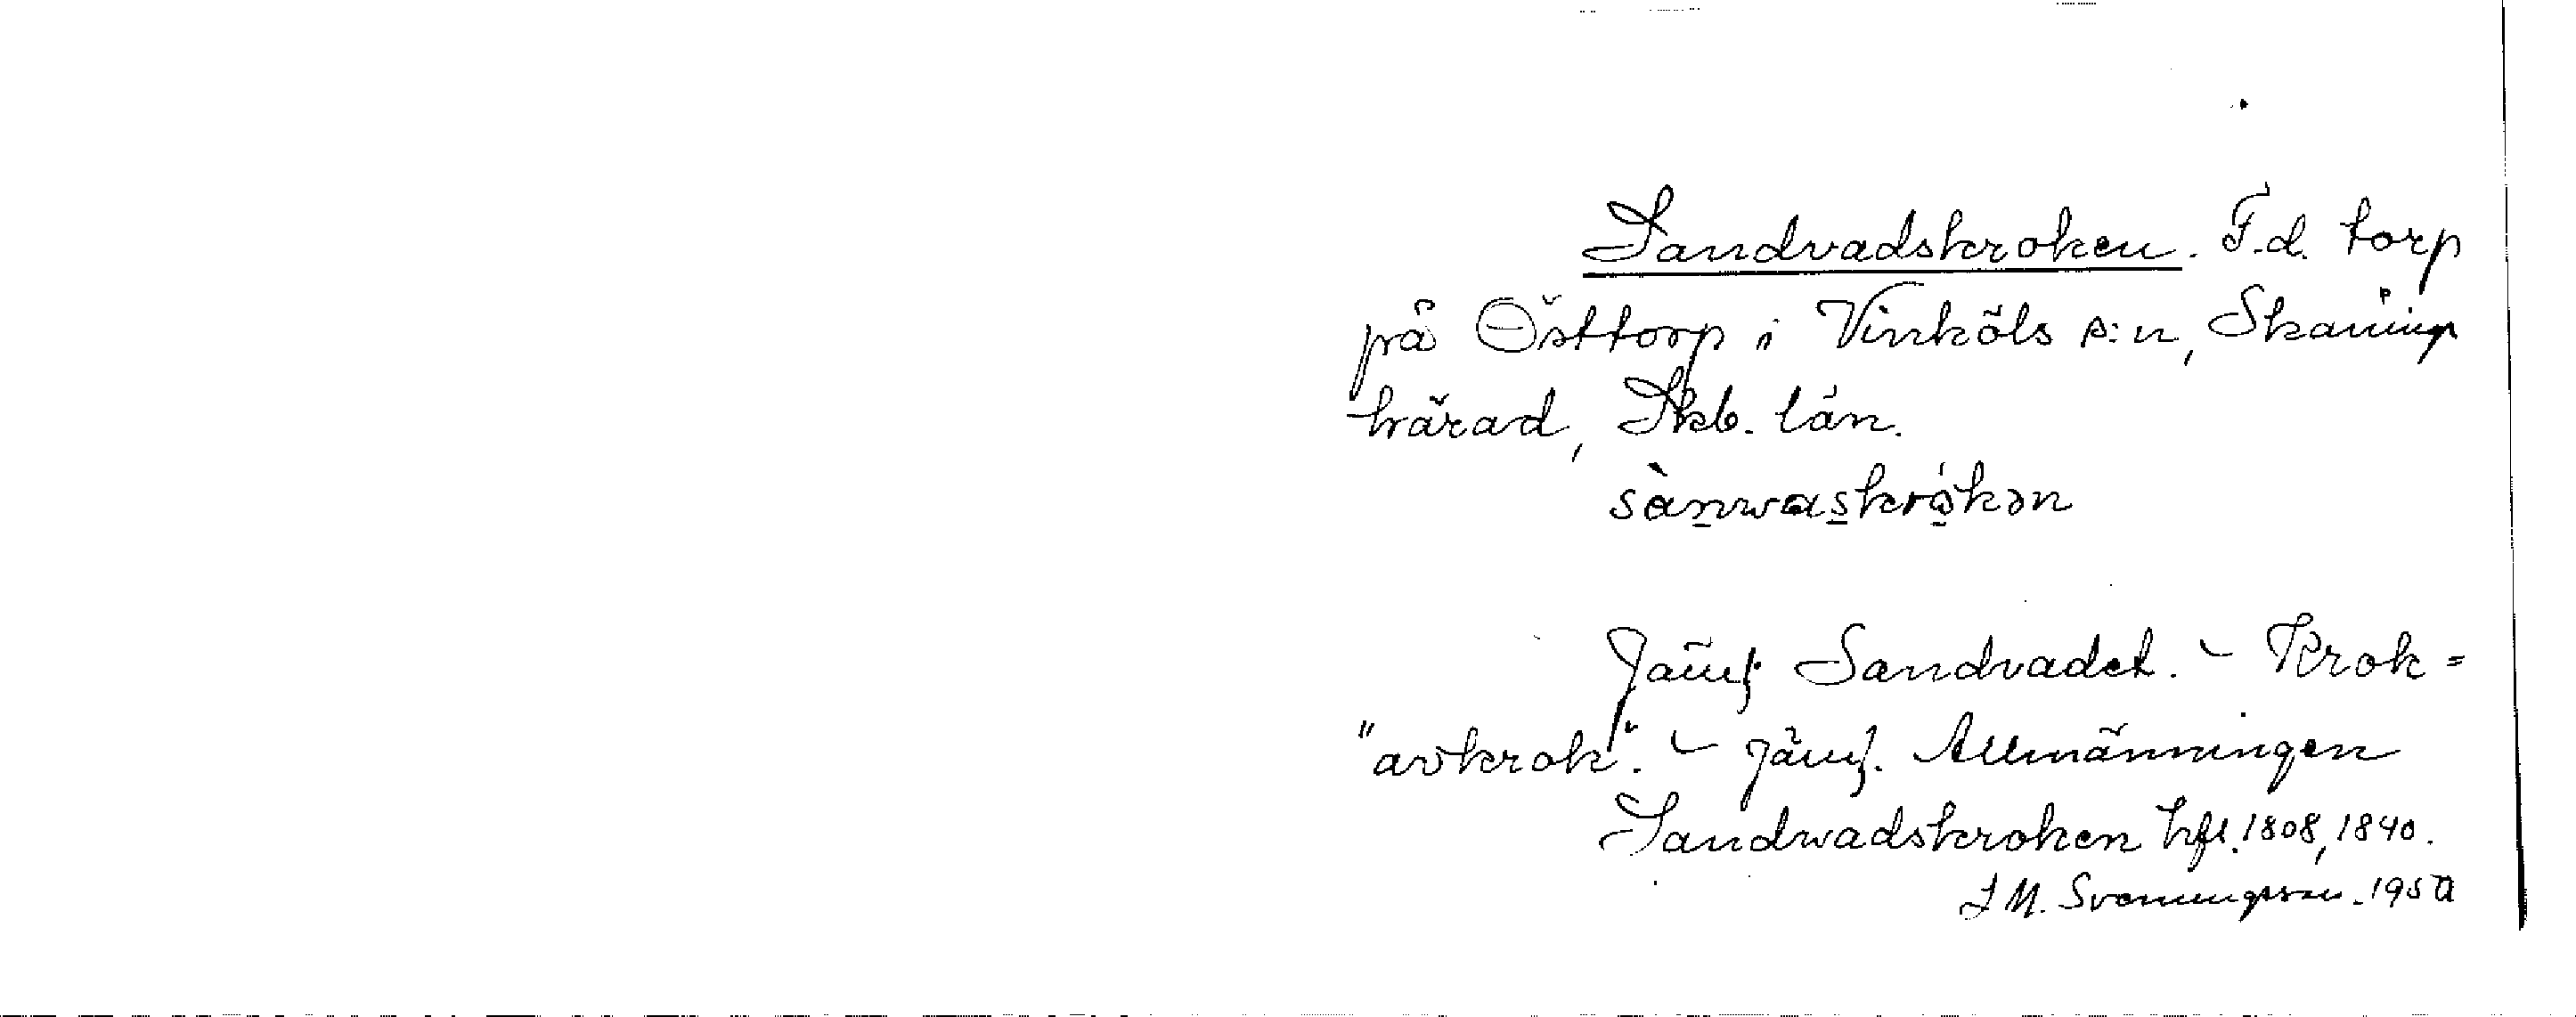 Sandvadskroken. F.d. torp
på Östtorp i Vinköls s:n, Skånings
härad, Skb. län.
sànwaskrókən
Jämf. Sandvadet. – Krok =
"avkrok". – Jämf. Allmänningen
Sandwadskroken hfl. 1808, 1840.
J M. Svenungsson. 1950